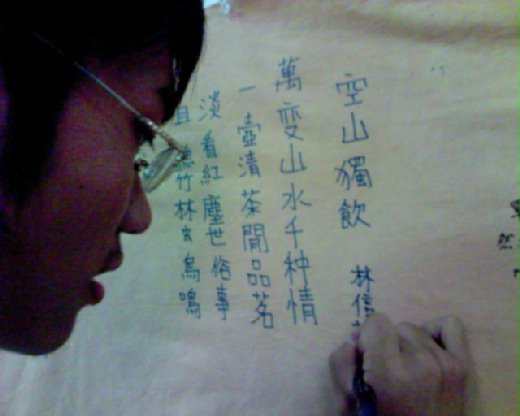 空山獨飲
林信
萬变山水千种情
一壺清茶閒品茗
淡看紅塵世俗事
且聽竹林玄鳥鳴
然